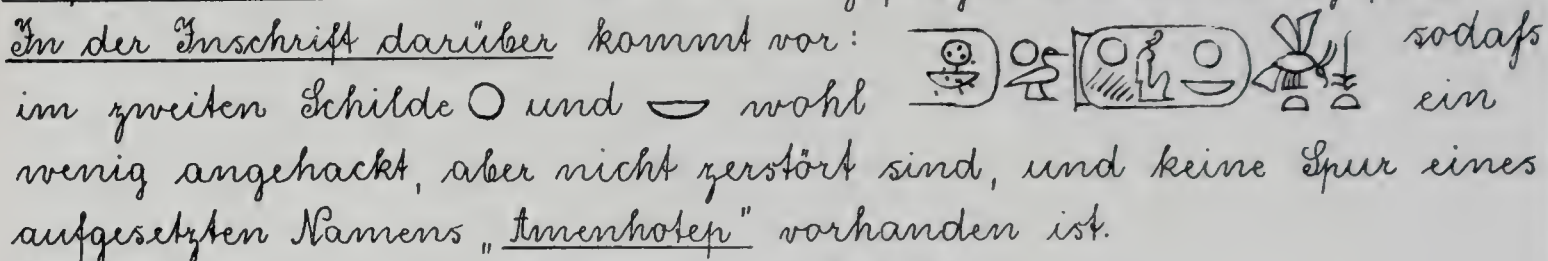 In der Inschrift darüber kommt vor: sodaſs
im zweiten Schilde und wohl ein
wenig angehackt, aber nicht zerstört sind, und keine Spur eines
aufgesetzten Namens „Amenhotep" vorhanden ist.